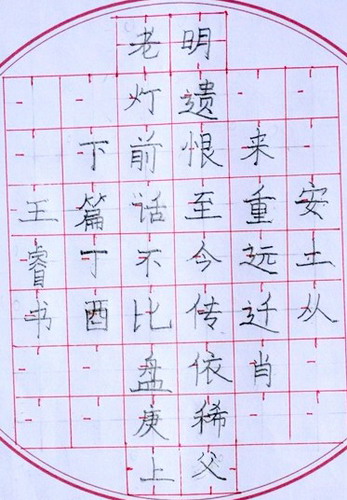 安土从
来重远迁肖
明遗恨至今传依稀父
老灯前话不比盘庚上
下篇丁酉
王睿书